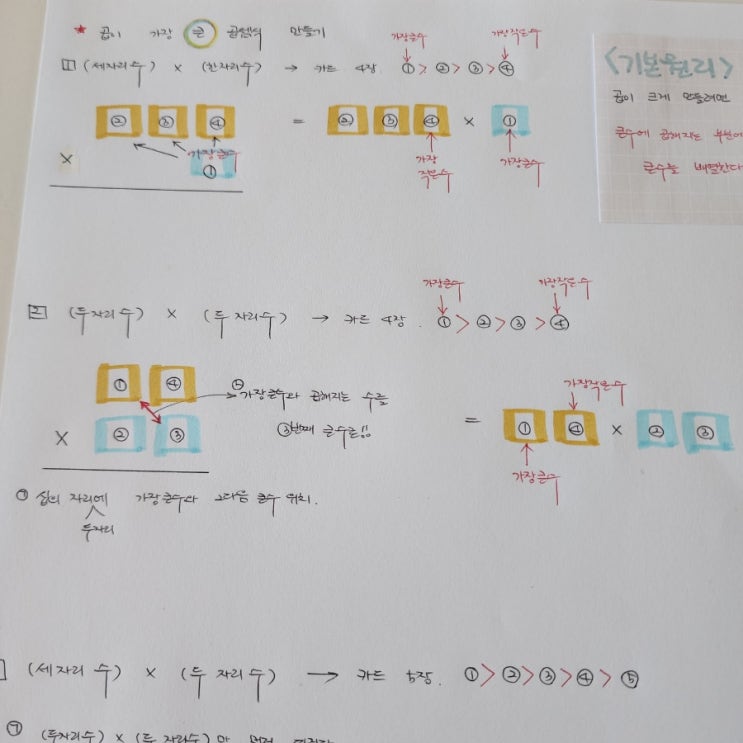 ★ 곱이 가장 큰 곱셈식 만들기
1 (세자리수) × (한자리수) → 카드 4장. ①>②>③>④
가장큰수 가장작은수
<기본원리>
곱이 크게 만들려면
큰수에 곱해지는 부분에
큰수를 배열한다
② ③ ④ = ② ③ ④ × ①
× 가장큰수 ①
가장작은수 가장큰수
2 (두자리수) × (두자리수) → 카드 4장. ①>②>③>④
가장큰수 가장작은수
① ④
× ② ③
가장큰수와 곱해지는 수를
③번째 큰수로!!
= ① ④ × ② ③
가장작은수
가장큰수
㉠ 십의 자리에 가장큰수와 그다음 큰수 위치.
두자리
(세자리 수) × (두 자리수) → 카드 5장. ①>②>③>④>⑤
㉠ (두자리수) × (두 자리수)만 먼저